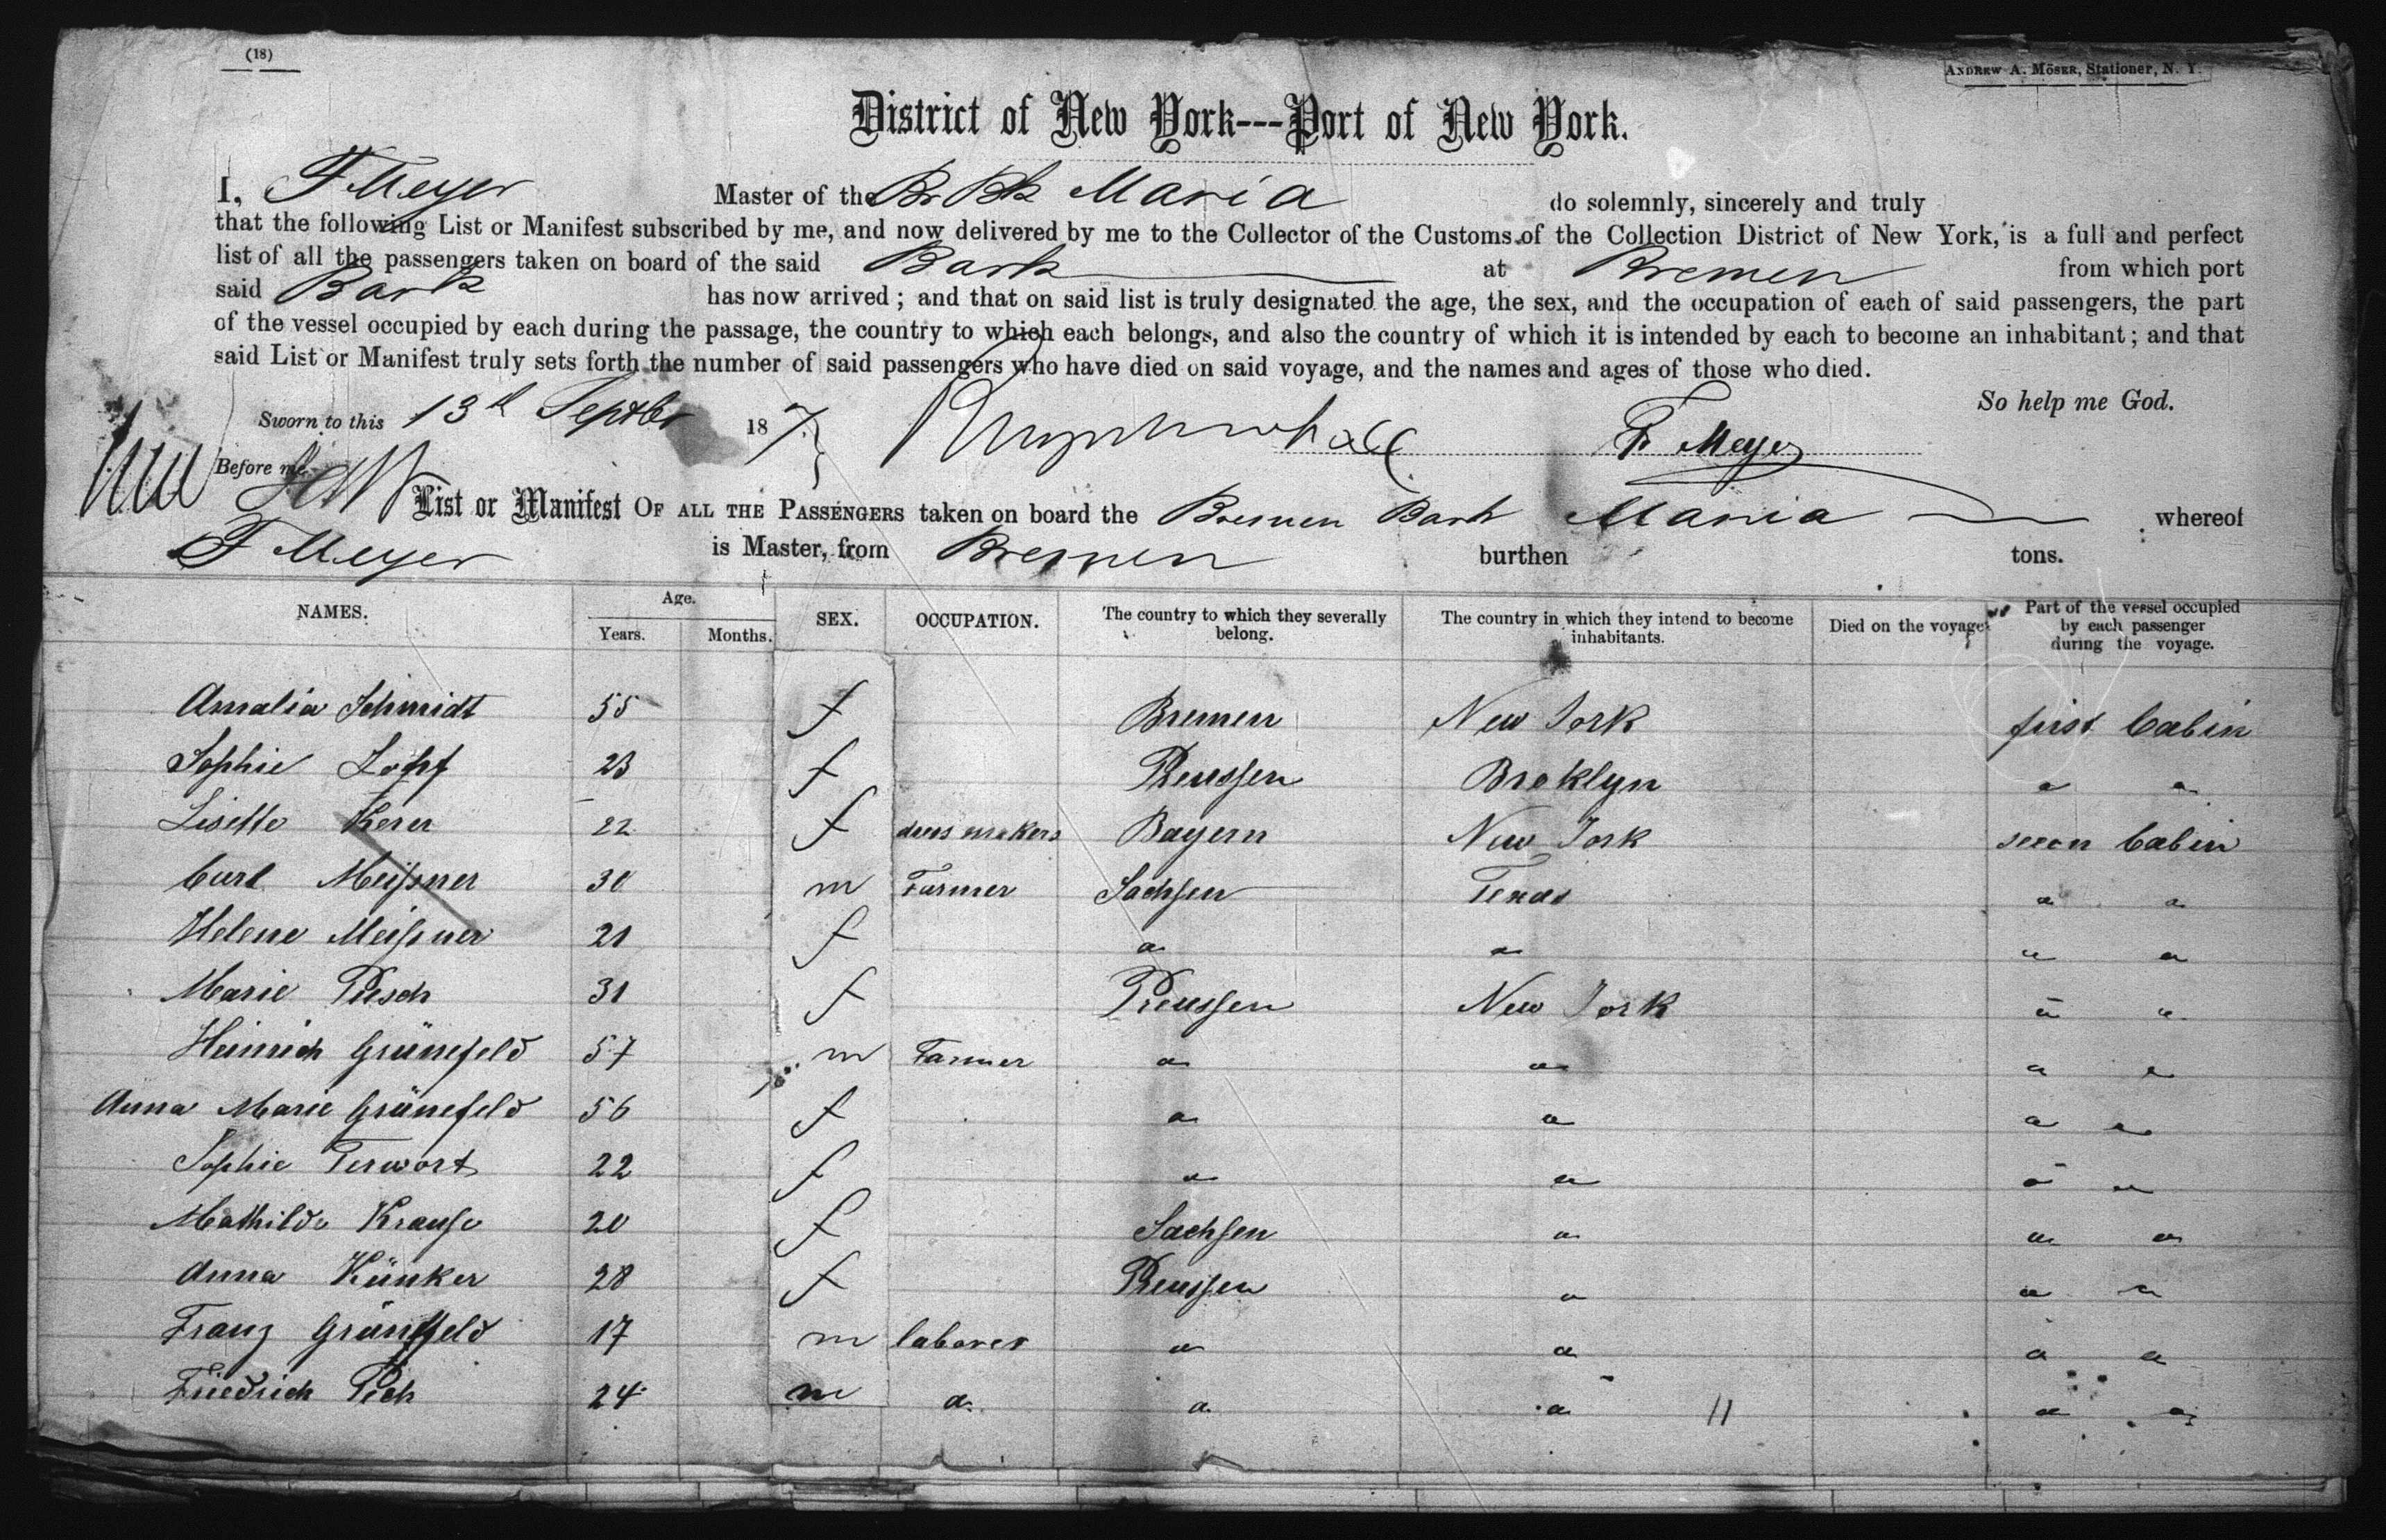 (18)
ANDREW A. MÖSER, Stationer, N. Y.
District of New York---Port of New York.
I, F Meyer Master of the Br Bk Maria do solemnly, sincerely and truly
that the following List or Manifest subscribed by me, and now delivered by me to the Collector of the Customs of the Collection District of New York, is a full and perfect
list of all the passengers taken on board of the said Bark at Bremen from which port
said Bark has now arrived; and that on said list is truly designated the age, the sex, and the occupation of each of said passengers, the part
of the vessel occupied by each during the passage, the country to which each belongs, and also the country of which it is intended by each to become an inhabitant; and that
said List or Manifest truly sets forth the number of said passengers who have died on said voyage, and the names and ages of those who died.
So help me God.
Sworn to this 13th Septbr 187 F. Meyer
Before me
List or Manifest OF ALL THE PASSENGERS taken on board the Bremen Bark Maria whereof
F Meyer is Master, from Bremen burthen tons.
NAMES. Age. Years. Months. SEX. OCCUPATION. The country to which they severally belong. The country in which they intend to become inhabitants. Died on the voyage. Part of the vessel occupied by each passenger during the voyage.
Amalia Schmidt 55 f Bremen New York first Cabin
Sophie 23 f Preussen Broklyn " "
Lisette Kerer 22 f dress makers Bayern New York secon Cabin
Carl Meißner 30 m Farmer Sachsen Texas " "
Helene Meißner 21 f " " " "
Marie Piesch 31 f Preussen New York " "
Heinrich Grünefeld 57 m Farmer " " " "
Anna Marie Grünefeld 56 f " " " "
Sophie Terwort 22 f " " " "
Mathilde Krause 20 f Sachsen " " "
Anna Künker 28 f Preussen " " "
Franz Grünefeld 17 m laborer " " " "
Friedrich Pich 24 m " " " 11 " "